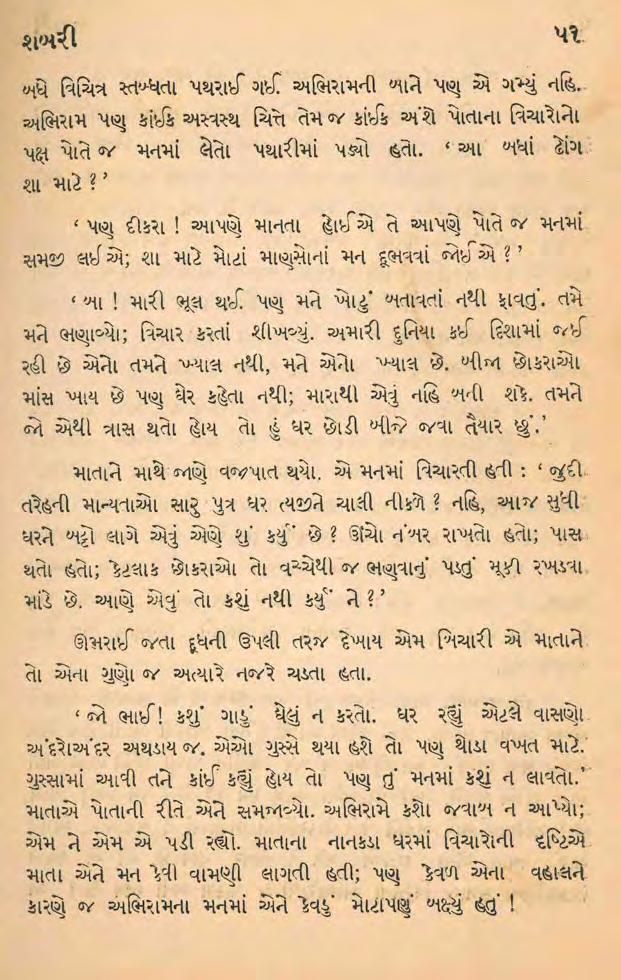 શબરી ૫૧
બધે વિચિત્ર સ્તબ્ધતા પથરાઈ ગઈ. અભિરામની બાને પણ એ ગમ્યું નહિ.
અભિરામ પણ કાંઈક અસ્વસ્થ ચિત્તે તેમ જ કાંઈક અંશે પોતાના વિચારોનો
પક્ષ પોતે જ મનમાં લેતો પથારીમાં પડ્યો હતો. ‘ આ બધાં ઢોંગ
શા માટે ? ’
‘ પણ દીકરા ! આપણે માનતા હોઈએ તે આપણે પોતે જ મનમાં
સમજી લઈએ; શા માટે મોટાં માણસોનાં મન દૂભવવાં જોઈએ ? ’
‘ બા ! મારી ભૂલ થઈ. પણ મને ખોટું બતાવતાં નથી ફાવતું. તમે
મને ભણાવ્યો; વિચાર કરતાં શીખવ્યું. અમારી દુનિયા કઈ દિશામાં જઈ
રહી છે એનો તમને ખ્યાલ નથી, મને એનો ખ્યાલ છે. બીજા છોકરાઓ
માંસ ખાય છે પણ ઘેર કહેતા નથી; મારાથી એવું નહિ બની શકે. તમને
જો એથી ત્રાસ થતો હોય તો હું ઘર છોડી બીજે જવા તૈયાર છું.’
માતાને માથે જાણે વજ્રપાત થયો. એ મનમાં વિચારતી હતી : ‘ જુદી
તરેહની માન્યતાઓ સારુ પુત્ર ઘર ત્યજીને ચાલી નીકળે ? નહિ, આજ સુધી
ઘરને બટ્ટો લાગે એવું એણે શું કર્યું છે ? ઊંચો નંબર રાખતો હતો; પાસ
થતો હતો; કેટલાક છોકરાઓ તો વચ્ચેથી જ ભણવાનું પડતું મૂકી રખડવા
માંડે છે. આણે એવું તો કશું નથી કર્યું ને ? ’
ઊભરાઈ જતા દૂધની ઉપલી તરજ દેખાય એમ બિચારી એ માતાને
તો એના ગુણો જ અત્યારે નજરે ચડતા હતા.
‘ જો ભાઈ ! કશું ગાડું ઘેલું ન કરતો. ઘર રહ્યું એટલે વાસણો
અંદરોઅંદર અથડાય જ. એઓ ગુસ્સે થયા હશે તો પણ થોડા વખત માટે.
ગુસ્સામાં આવી તને કાંઈ કહ્યું હોય તો પણ તું મનમાં કશું ન લાવતો.’
માતાએ પોતાની રીતે એને સમજાવ્યો. અભિરામે કશો જવાબ ન આપ્યો;
એમ ને એમ એ પડી રહ્યો. માતાના નાનકડા ઘરમાં વિચારોની દૃષ્ટિએ
માતા એને મન કેવી વામણી લાગતી હતી; પણ કેવળ એના વહાલને
કારણે જ અભિરામના મનમાં એને કેવડું મોટાપણું બક્ષ્યું હતું !